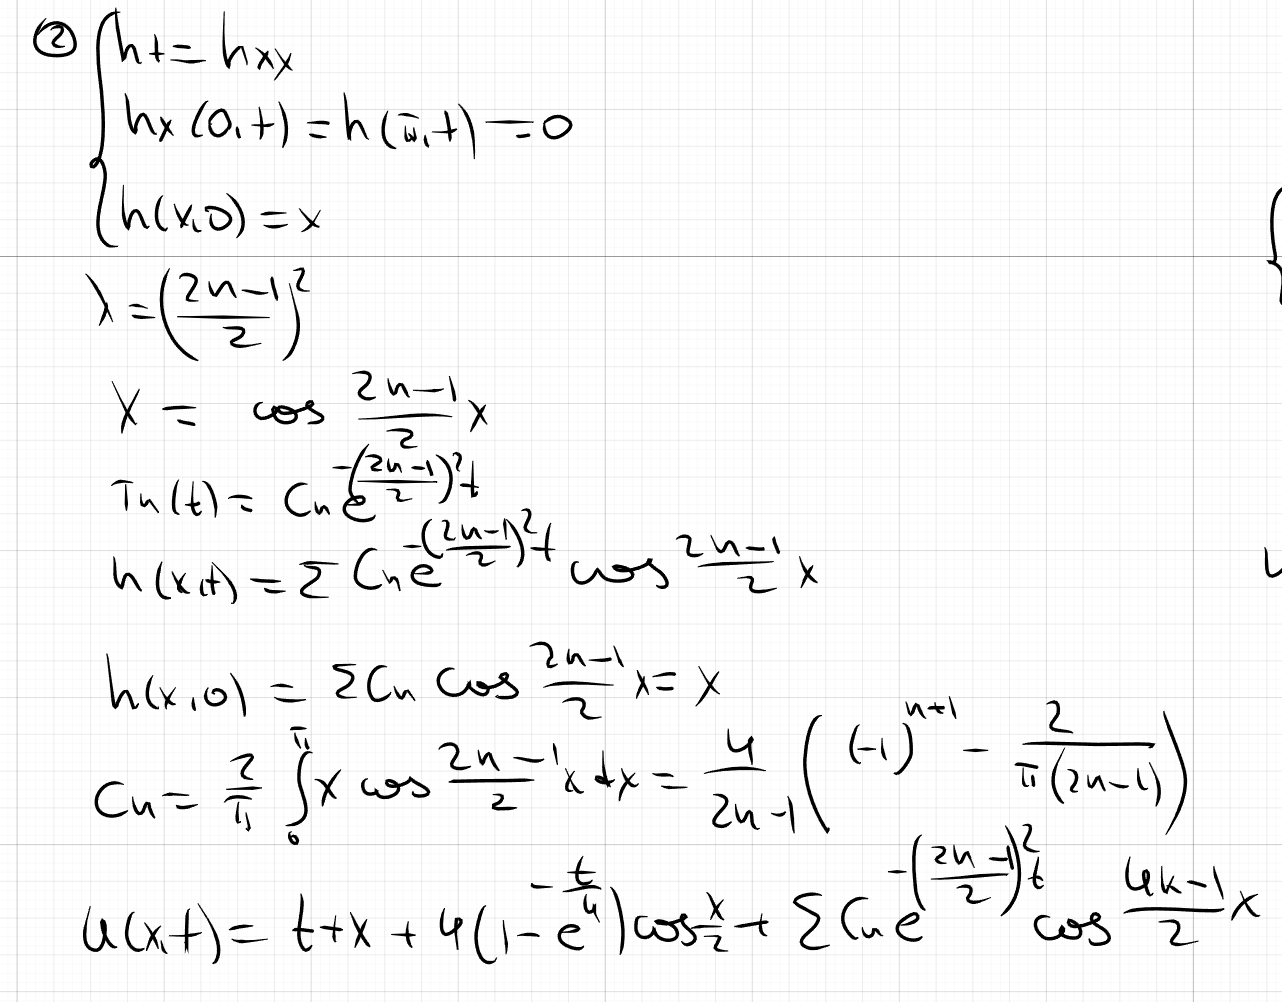 ② { ht = hxx
hx (0,t) = h(π,t) = 0
h(x,0) = x
λ = ((2n-1)/2)^2
X = cos (2n-1)/2 x
Tn(t) = Cn e^(-((2n-1)/2)^2 t)
h(x,t) = Σ Cn e^(-((2n-1)/2)^2 t) cos (2n-1)/2 x
h(x,0) = Σ Cn cos (2n-1)/2 x = x
Cn = 2/π ∫_0^π x cos (2n-1)/2 x dx = 4/(2n-1) ((-1)^(n+1) - 2/(π(2n-1)))
u(x,t) = t+x + 4(1-e^(-t/4)) cos x/2 + Σ Cn e^(-((2n-1)/2)^2 t) cos (4k-1)/2 x